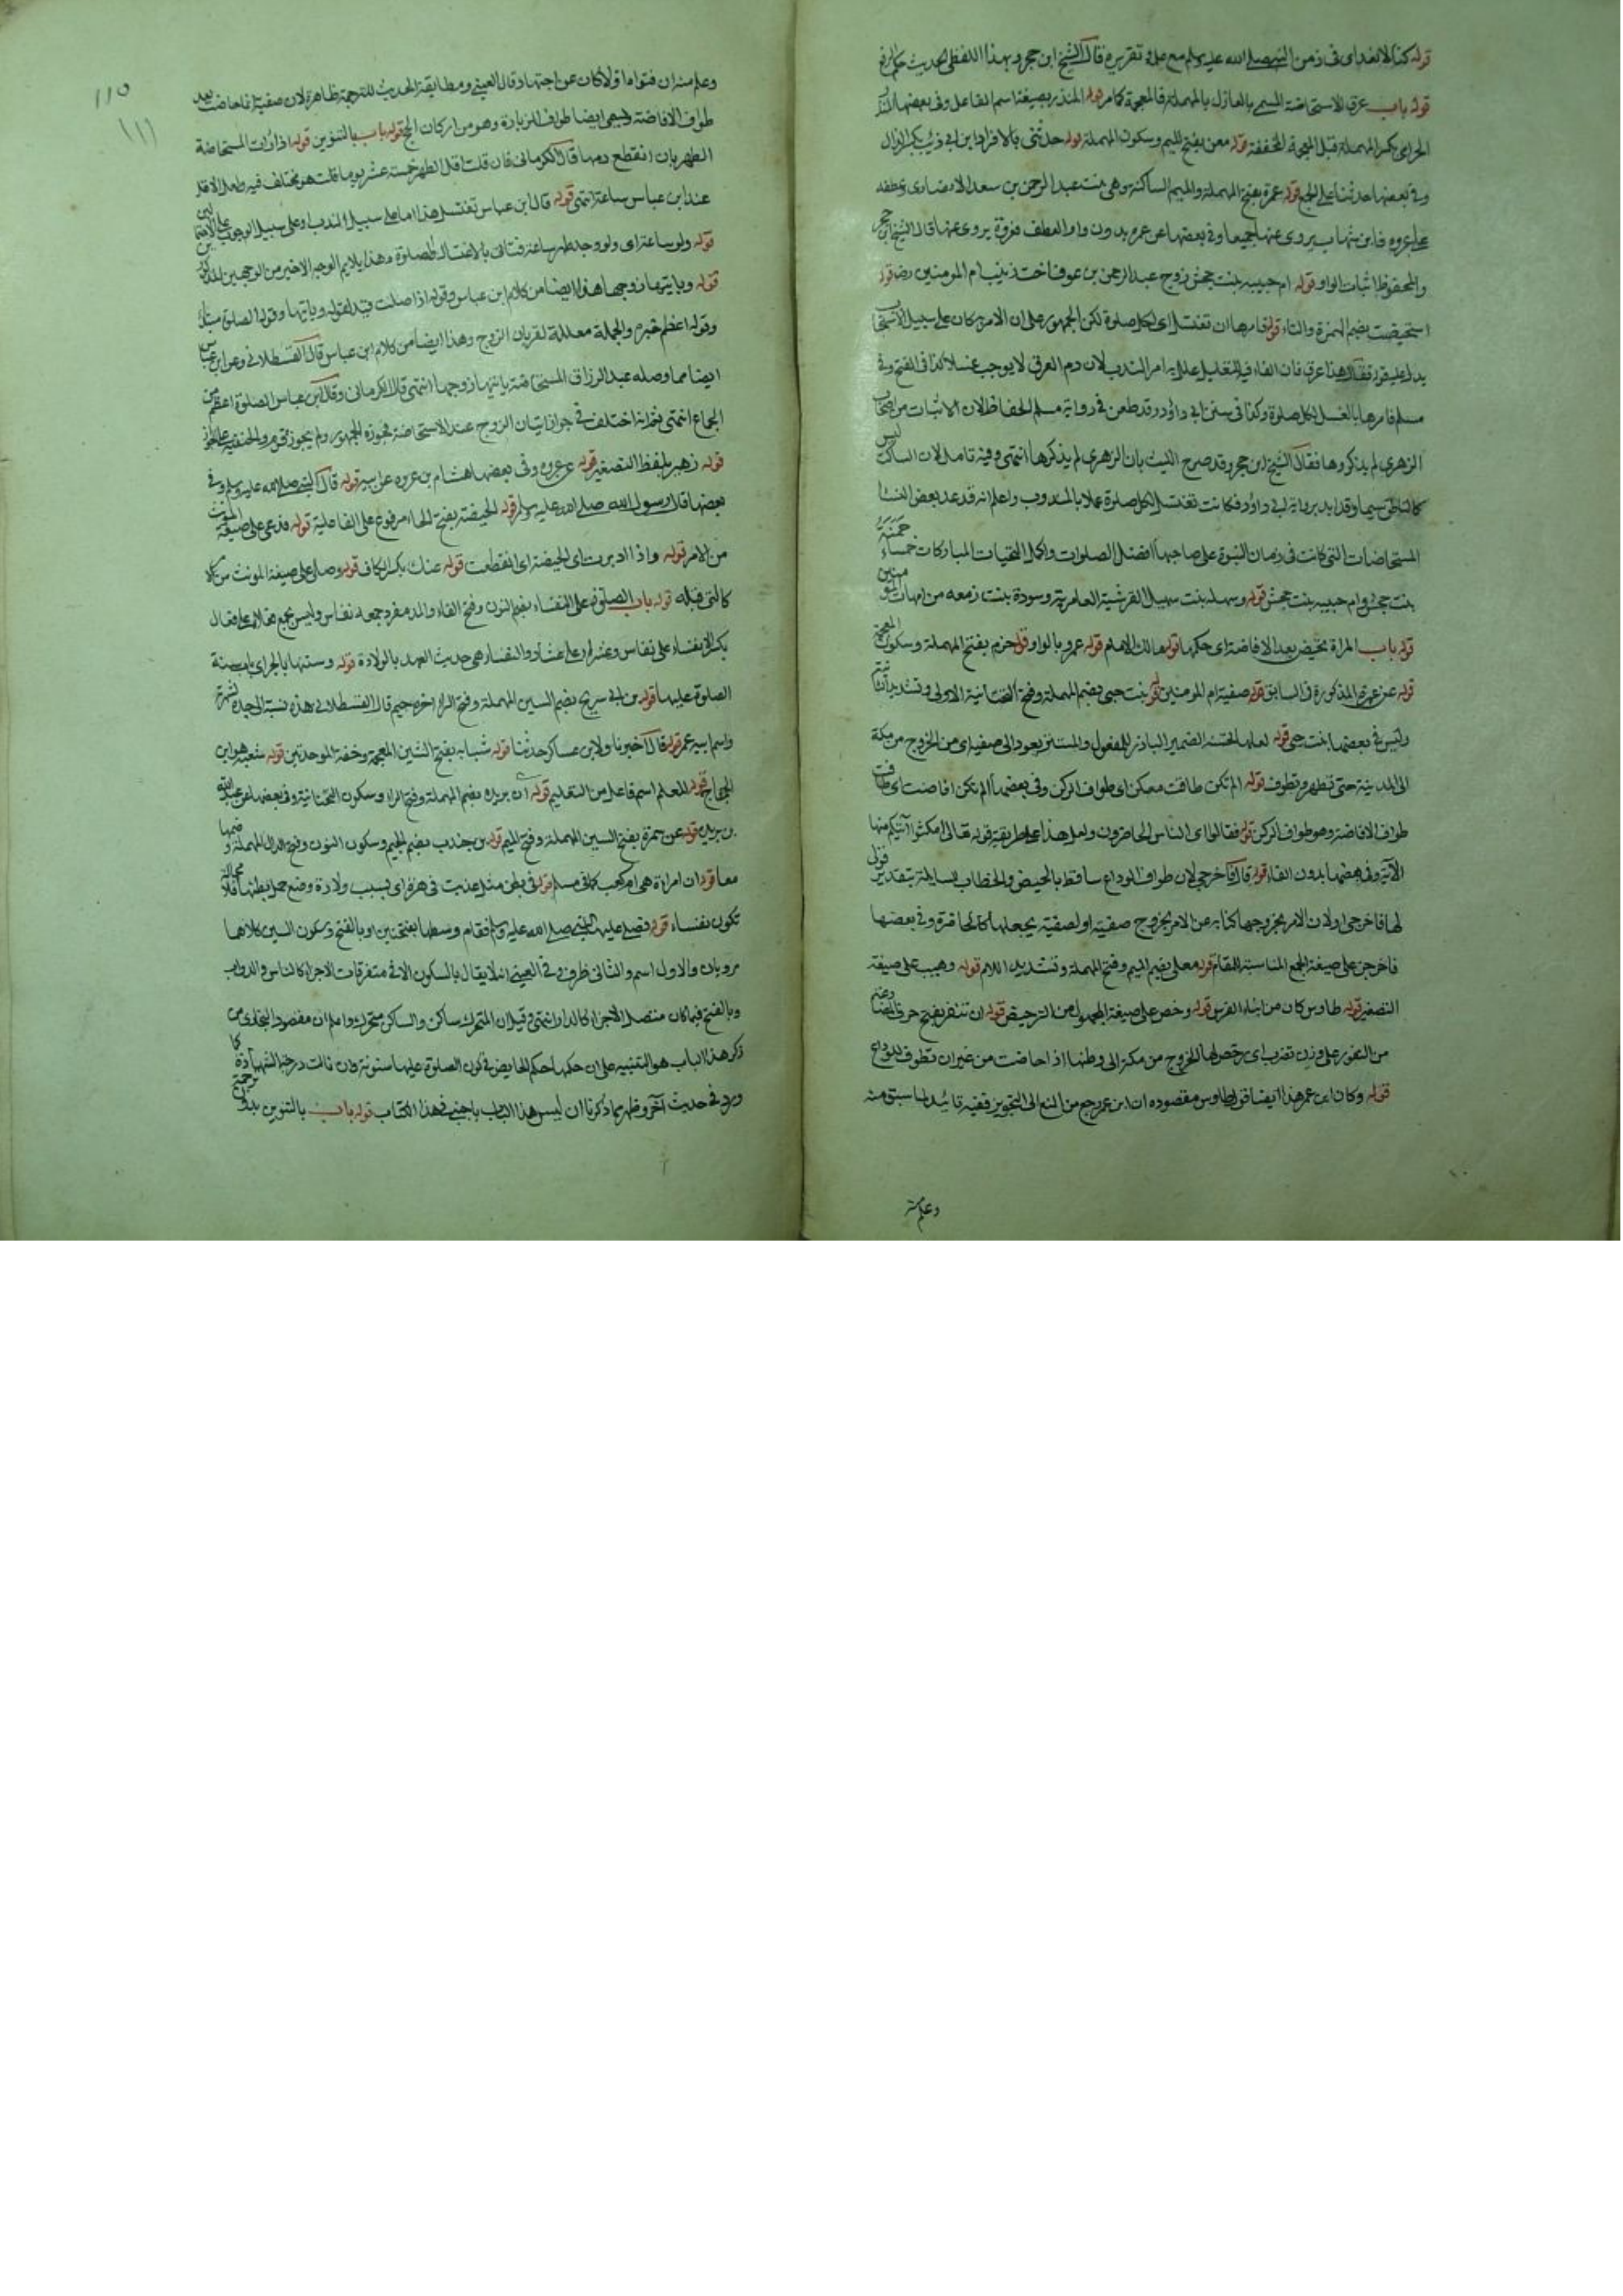 قوله كنا لا نعد اى فى زمن النبي صلى الله عليه وسلم مع علمه وتقريره قال الشيخ ابن حجر وبهذا اللفظ الحديث حكم الرفع
قوله باب عرق الاستحاضة المسمى بالعازل بالمهملة فالمعجمة كما مر قوله المنذر بصيغة اسم الفاعل وفى بعضها
الحزامى بكسر المهملة قبل المعجمة المخففة قوله معن بفتح الميم وسكون المهملة قوله حدثنى بالافراد ابن ابى ذئب بكسر الذال
وفى بعضها حدثنا على الجمع قوله عمرة بفتح المهملة والميم الساكنة وهى بنت عبد الرحمن بن سعد الانصارى وعطفه
على عروه فابن شهاب يروى عنهما جميعا وفى بعضها عن عمرة بدون واو العطف فعروة يروى عنها قال الشيخ ابن حجر
والمحفوظ اثبات الواو قوله ام حبيبه بنت جحش زوج عبد الرحمن بن عوف اخت زينب ام المومنين رضه قوله
استحيضت بضم الهمزة والتاء قوله فامرها ان تغتسل اى لكل صلوة لكن الجمهور على ان الامر كان على سبيل الاستحباب
يدل عليه قوله فقال هذا عرق فان الفاء فيه للتعليل على انه امر الندب لان دم العرق لا يوجب غسلا كذا فى الفتح وفى
مسلم فامرها بالغسل لكل صلوة وكذا فى سنن ابى داؤد وقد طعن فى رواية مسلم الحفاظ لان الاثبات من اصحاب
الزهرى لم يذكروها فقال الشيخ ابن حجر وقد صرح الليث بان الزهرى لم يذكرها انتهى وفيه تامل لان الساكت ليس
كالناطق سيما وقد ايد برواية ابى داؤد فكانت تغتسل لكل صلوة عملا بالمندوب واعلم انه قد عد بعض النساء
المستحاضات التى كانت فى زمان النبوة على صاحبها افضل الصلوات واكمل التحيات المباركات خمسا حمنة
بنت جحش وام حبيبه بنت جحش قوله وسهله بنت سهيل القرشية العامرية وسودة بنت زمعه من امهات المومنين
قوله باب المراة تحيض بعد الافاضة اى حكمها قوله مالك الامام قوله عمرو بالواو قوله حزم بفتح المهملة وسكون المعجمة
قوله عن عمرة المذكورة فى السابق قوله صفية ام المومنين قوله بنت حيى بضم المهملة وفتح التحتانية الاولى وتشديد الثانية
وليس فى بعضها بنت حيى قوله لعلها تحبسنا الضمير البارز للمفعول والمستتر يعود الى صفية اى من الخروج من مكة
الى المدينة حتى تطهر وتطوف قوله الم تكن طافت معكن اى طواف الركن وفى بعضها الم تكن افاضت اى طافت
طواف الافاضة وهو طواف الركن قوله فقالوا اى الناس الحاضرون ولعل هذا على طريقة قوله تعالى امكثوا آتيكم منها
الآية وفى بعضها بدون الفاء قوله قال فاخرجى لان طواف الوداع ساقط بالحيض والخطاب بتقدير قولى
لها فاخرجى ولان الامر بخروجها كناية عن الامر بخروج صفية او لصفية يجعلها كانها حاضرة وفى بعضها
فاخرجن على صيغة الجمع المناسبة للمقام قوله معلى بضم الميم وفتح المهملة وتشديد اللام قوله وهيب على صيغة
التصغير قوله طاوس كان من ابناء الفرس قوله رخص على صيغة المجهول من الترخيص قوله ان تنفر بفتح حرف
من النفور على وزن تضرب اى رخص لها الخروج من مكة الى وطنها اذا حاضت من غير ان تطوف للوداع
قوله وكان ابن عمر هذا ايضا قول طاوس مقصوده ان ابن عمر رجع من المنع الى التجويز ففيه تائيد لما سبق منه
وعلم منه
١١٥
١١١
وعلم منه ان فتواه اولا كان عن اجتهاد وقال العينى ومطابقة الحديث للترجمة ظاهرة لان صفية انما حاضت بعد
طواف الافاضة ويسمى ايضا طواف الزيارة وهو من اركان الحج قوله باب بالتنوين قوله اذا رات المستحاضة
الطهر بان انقطع دمها قال الكرمانى فان قلت اقل الطهر خمسة عشر يوما قلت هو مختلف فيه ولعل الاقل
عند ابن عباس ساعة انتهى قوله قال ابن عباس تغتسل هذا اما على سبيل الندب او على سبيل الوجوب
قوله ولو ساعة اى ولو وجد طهر ساعة فتاتى بالاغتسال والصلوة وهذا يلايم الوجه الاخير من الوجهين
قوله وياتيها زوجها هذا ايضا من كلام ابن عباس وقوله اذا صلت قيد لقوله وياتيها وقوله الصلوة مبتدأ
وقوله اعظم خبره والجملة معللة لقربان الزوج وهذا ايضا من كلام ابن عباس قال القسطلانى وعن ابن عباس
ايضا مما وصله عبد الرزاق المستحاضة ياتيها زوجها انتهى قال الكرمانى وقال ابن عباس الصلوة اعظم من
الجماع انتهى ثم انه اختلف فى جواز اتيان الزوج عند الاستحاضة فجوزه الجمهور ولم يجوز قوم والحنفية على الجواز
قوله زهير بلفظ التصغير قوله عن عروه وفى بعضها هشام بن عروه عن ابيه قوله قال النبي صلى الله عليه وسلم وفى
بعضها قال رسول الله صلى الله عليه وسلم قوله الحيضة بفتح الحاء مرفوع على الفاعلية قوله فدعى على صيغة المونث
من الامر قوله واذا ادبرت اى الحيضة اى انقطعت قوله عنك بكسر الكاف قوله وصلى على صيغة المونث
كالتى قبله قوله باب الصلوة على النفساء بضم النون وفتح الفاء والمد مفرد جمعه نفاس وليس يجمع فعلاء على فعال
بكسر الا نفساء على نفاس وعشراء على عشار والنفساء هى حديث العهد بالولادة قوله وسنتها بالجر اى باب سنة
الصلوة عليها قوله بن ابى سريج بضم السين المهملة وفتح الراء اخره جيم قال القسطلانى هذه نسبة الى جده لشهرته
واسم ابيه عمر قوله قال اخبرنا ولابن عساكر حدثنا قوله شبابه بفتح الشين المعجمة وخفة الموحدتين قوله شعبة هو ابن
الحجاج قوله المعلم اسم فاعل من التعليم قوله ابن بريدة بضم المهملة وفتح الراء وسكون التحتانية وفى بعضها عن عبد الله
بن بريده قوله عن سمرة بفتح السين المهملة وفتح الميم قوله بن جندب بضم الجيم وسكون النون وفتح الدال المهملة وضمها
معا قوله ان امراة هى ام كعب كما فى مسلم قوله فى بطن مثل عذبت فى هرة اى بسبب ولادة وضع حمل بطنها
تكون نفساء قوله فصلى عليها النبي صلى الله عليه وسلم فقام وسطها بفتحتين او بالفتح وسكون السين كلاهما
مرويان والاول اسم والثانى ظرف وفى العينى انه لا يقال بالسكون الا فى متفرقات الاجزاء كالناس والدواب
وبالفتح فيما كان متصل الاجزاء كالدار انتهى قيل ان المتحرك ساكن والساكن متحرك واعلم ان مقصود البخارى من
ذكر هذا الباب هو التنبيه على ان حكمها حكم الحايض فى كون الصلوة عليها مسنونة وان نالت درجة الشهادة كما
ورد فى حديث آخر وظهر مما ذكرنا ان ليس هذا الباب باجنبى فى هذا الكتاب قوله باب بالتنوين بدون ترجمة